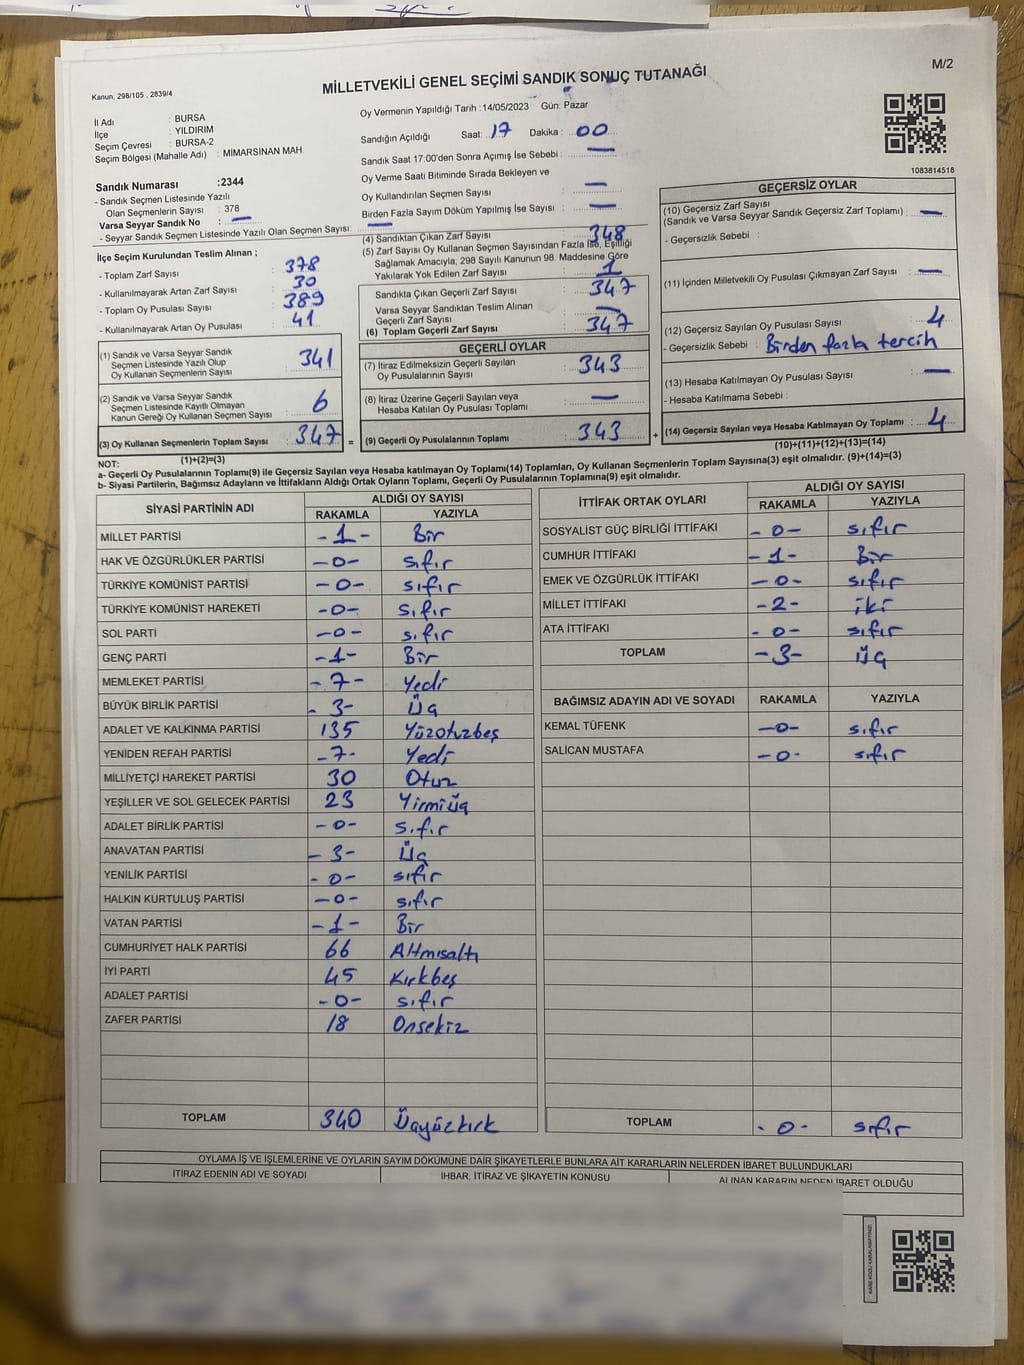 M/2
MİLLETVEKİLİ GENEL SEÇİMİ SANDIK SONUÇ TUTANAĞI
Kanun, 298/105 , 2839/4
İl Adı : BURSA
İlçe : YILDIRIM
Seçim Çevresi : BURSA-2
Seçim Bölgesi (Mahalle Adı) : MİMARSİNAN MAH.
Oy Vermenin Yapıldığı Tarih :14/05/2023 Gün: Pazar
Sandığın Açıldığı Saat: 17 Dakika : 00
Sandık Saat 17:00'den Sonra Açımış İse Sebebi : —
Oy Verme Saati Bitiminde Sırada Bekleyen ve
Oy Kullandırılan Seçmen Sayısı : —
Birden Fazla Sayım Döküm Yapılmış İse Sayısı : —
1083814518
Sandık Numarası :2344
- Sandık Seçmen Listesinde Yazılı
Olan Seçmenlerin Sayısı : 378
Varsa Seyyar Sandık No : —
- Seyyar Sandık Seçmen Listesinde Yazılı Olan Seçmen Sayısı: —
İlçe Seçim Kurulundan Teslim Alınan ;
- Toplam Zarf Sayısı : 378
- Kullanılmayarak Artan Zarf Sayısı : 30
- Toplam Oy Pusulası Sayısı : 389
- Kullanılmayarak Artan Oy Pusulası : 41
(1) Sandık ve Varsa Seyyar Sandık
Seçmen Listesinde Yazılı Olup
Oy Kullanan Seçmenlerin Sayısı : 341
(2) Sandık ve Varsa Seyyar Sandık
Seçmen Listesinde Kayıtlı Olmayan
Kanun Gereği Oy Kullanan Seçmen Sayısı : 6
(3) Oy Kullanan Seçmenlerin Toplam Sayısı : 347 =
(1)+(2)=(3)
(4) Sandıktan Çıkan Zarf Sayısı : 348
(5) Zarf Sayısı Oy Kullanan Seçmen Sayısından Fazla İse, Eşitliği
Sağlamak Amacıyla; 298 Sayılı Kanunun 98. Maddesine Göre
Yakılarak Yok Edilen Zarf Sayısı : 1
Sandıkta Çıkan Geçerli Zarf Sayısı : 347
Varsa Seyyar Sandıktan Teslim Alınan
Geçerli Zarf Sayısı : —
(6) Toplam Geçerli Zarf Sayısı : 347
GEÇERLİ OYLAR
(7) İtiraz Edilmeksizin Geçerli Sayılan
Oy Pusulalarının Sayısı : 343
(8) İtiraz Üzerine Geçerli Sayılan veya
Hesaba Katılan Oy Pusulası Toplamı : —
(9) Geçerli Oy Pusulalarının Toplamı : 343 +
GEÇERSİZ OYLAR
(10) Geçersiz Zarf Sayısı
(Sandık ve Varsa Seyyar Sandık Geçersiz Zarf Toplamı) : —
- Geçersizlik Sebebi :
(11) İçinden Milletvekili Oy Pusulası Çıkmayan Zarf Sayısı : —
(12) Geçersiz Sayılan Oy Pusulası Sayısı : 4
- Geçersizlik Sebebi : Birden fazla tercih
(13) Hesaba Katılmayan Oy Pusulası Sayısı : —
- Hesaba Katılmama Sebebi :
(14) Geçersiz Sayılan veya Hesaba Katılmayan Oy Toplamı : 4
(10)+(11)+(12)+(13)=(14)
NOT:
a- Geçerli Oy Pusulalarının Toplamı(9) ile Geçersiz Sayılan veya Hesaba katılmayan Oy Toplamı(14) Toplamları, Oy Kullanan Seçmenlerin Toplam Sayısına(3) eşit olmalıdır. (9)+(14)=(3)
b- Siyasi Partilerin, Bağımsız Adayların ve İttifakların Aldığı Ortak Oyların Toplamı, Geçerli Oy Pusulalarının Toplamına(9) eşit olmalıdır.
SİYASİ PARTİNİN ADI ALDIĞI OY SAYISI
RAKAMLA YAZIYLA
MİLLET PARTİSİ -1- Bir
HAK VE ÖZGÜRLÜKLER PARTİSİ -0- sıfır
TÜRKİYE KOMÜNİST PARTİSİ -0- sıfır
TÜRKİYE KOMÜNİST HAREKETİ -0- sıfır
SOL PARTİ -0- sıfır
GENÇ PARTİ -1- Bir
MEMLEKET PARTİSİ -7- Yedi
BÜYÜK BİRLİK PARTİSİ -3- Üç
ADALET VE KALKINMA PARTİSİ 135 Yüzotuzbeş
YENİDEN REFAH PARTİSİ -7- Yedi
MİLLİYETÇİ HAREKET PARTİSİ 30 Otuz
YEŞİLLER VE SOL GELECEK PARTİSİ 23 Yirmiüç
ADALET BİRLİK PARTİSİ -0- sıfır
ANAVATAN PARTİSİ -3- Üç
YENİLİK PARTİSİ -0- sıfır
HALKIN KURTULUŞ PARTİSİ -0- sıfır
VATAN PARTİSİ -1- Bir
CUMHURİYET HALK PARTİSİ 66 Altmısaltı
İYİ PARTİ 45 Kırkbeş
ADALET PARTİSİ -0- sıfır
ZAFER PARTİSİ 18 Onsekiz
TOPLAM 340 Üçyüzkırk
İTTİFAK ORTAK OYLARI ALDIĞI OY SAYISI
RAKAMLA YAZIYLA
SOSYALİST GÜÇ BİRLİĞİ İTTİFAKI -0- sıfır
CUMHUR İTTİFAKI -1- Bir
EMEK VE ÖZGÜRLÜK İTTİFAKI -0- sıfır
MİLLET İTTİFAKI -2- iki
ATA İTTİFAKI -0- sıfır
TOPLAM -3- Üç
BAĞIMSIZ ADAYIN ADI VE SOYADI RAKAMLA YAZIYLA
KEMAL TÜFENK -0- sıfır
SALİCAN MUSTAFA -0- sıfır
TOPLAM -0- sıfır
OYLAMA İŞ VE İŞLEMLERİNE VE OYLARIN SAYIM DÖKÜMÜNE DAİR ŞİKAYETLERLE BUNLARA AİT KARARLARIN NELERDEN İBARET BULUNDUKLARI
İTİRAZ EDENİN ADI VE SOYADI İHBAR, İTİRAZ VE ŞİKAYETİN KONUSU ALINAN KARARIN NEDEN İBARET OLDUĞU